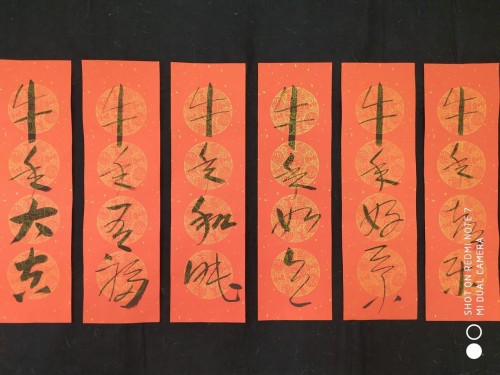 牛年大吉
牛年福
牛年和
牛年如意
牛年好景
牛年乐
SHOT ON REDMI NOTE 7
MI DUAL CAMERA